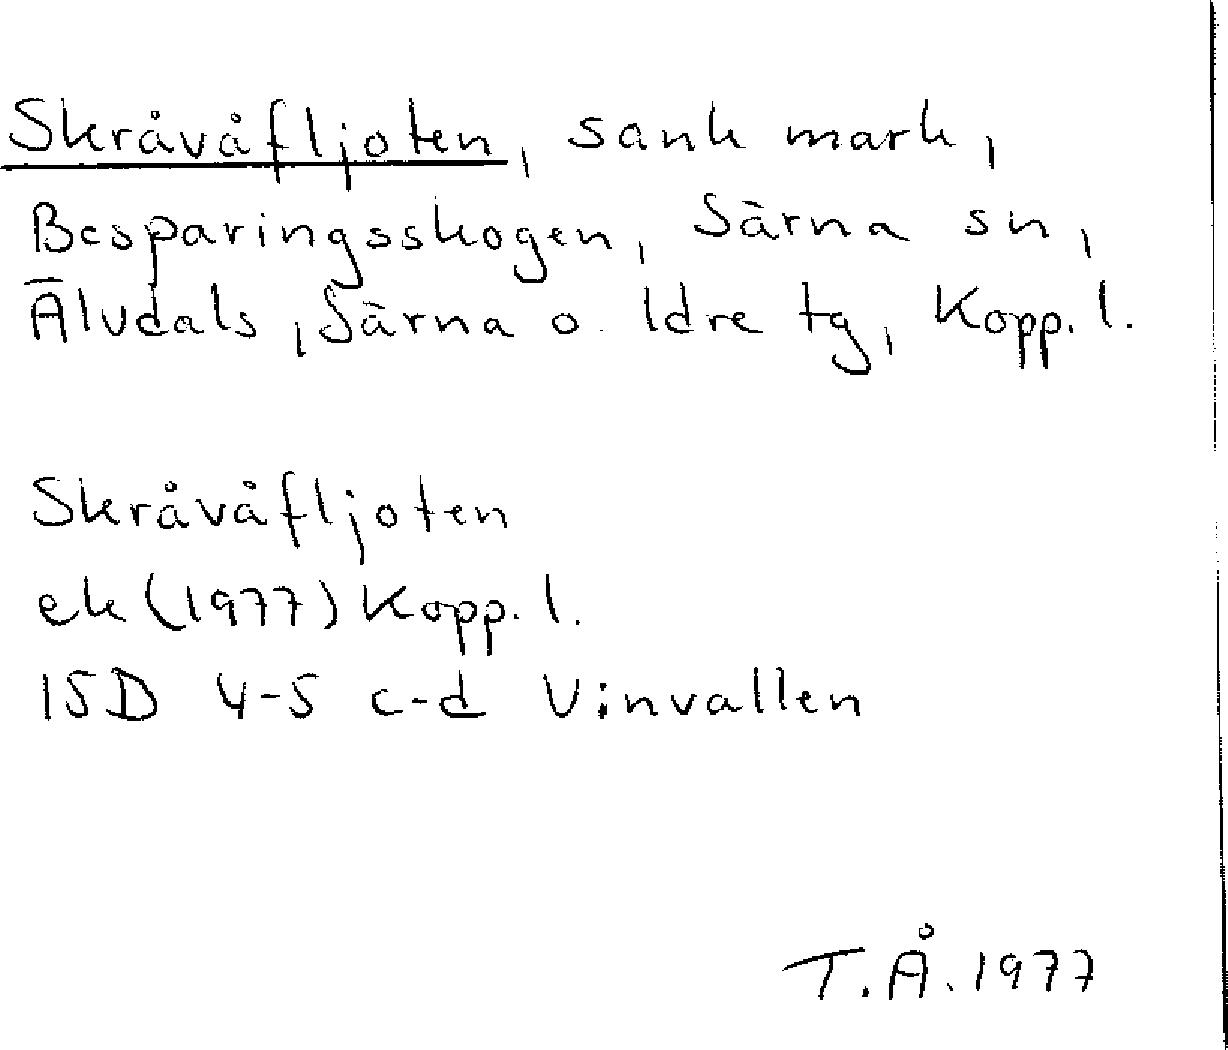 Skråvåfljoten, sank mark,
Besparingsskogen, Särna sn,
Älvdals, Särna o. Idre tg, Kopp. l.
Skråvåfljoten
ek (1977) Kopp. l.
15D 4-5 c-d Vinvallen
T.Å. 1977